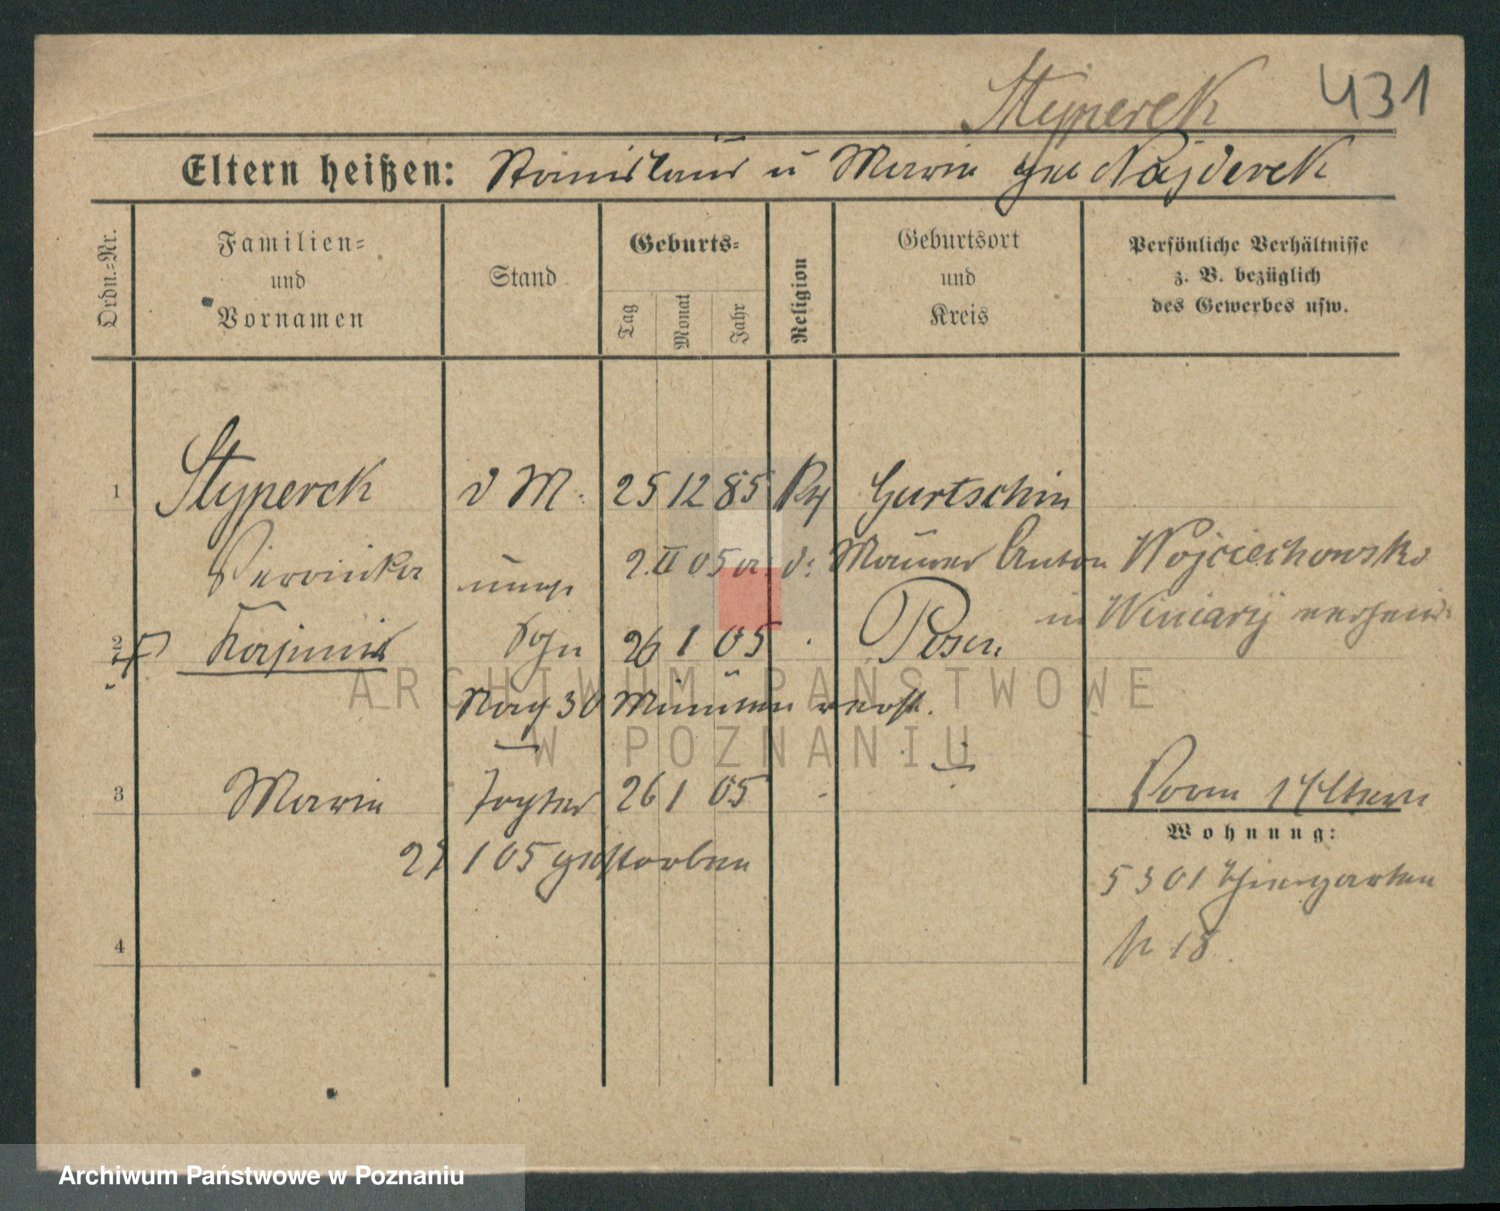 Styperek 431
Eltern heißen: Stanislaus u Maria geb Najderek
Ordn.-Nr.
Familien-
und
Vornamen
Stand
Geburts-
Tag
Monat
Jahr
Religion
Geburtsort
und
Kreis
Persönliche Verhältnisse
z. B. bezüglich
des Gewerbes usw.
1 Styperek d M. 25 12 85 Gurtschin
Veronika 2. II 05 a. d. Maurer Anton Wojciechowski
in Winiary verheir.
2 Kasimir Sohn 26 1 05 Posen
Nach 30 Minuten verst.
3 Maria Tochter 26 1 05 Eltern
27 1 05 gestorben
Wohnung:
5 3 01 Thiergarten
4
18.
ARCHIWUM PAŃSTWOWE
W POZNANIU
Archiwum Państwowe w Poznaniu